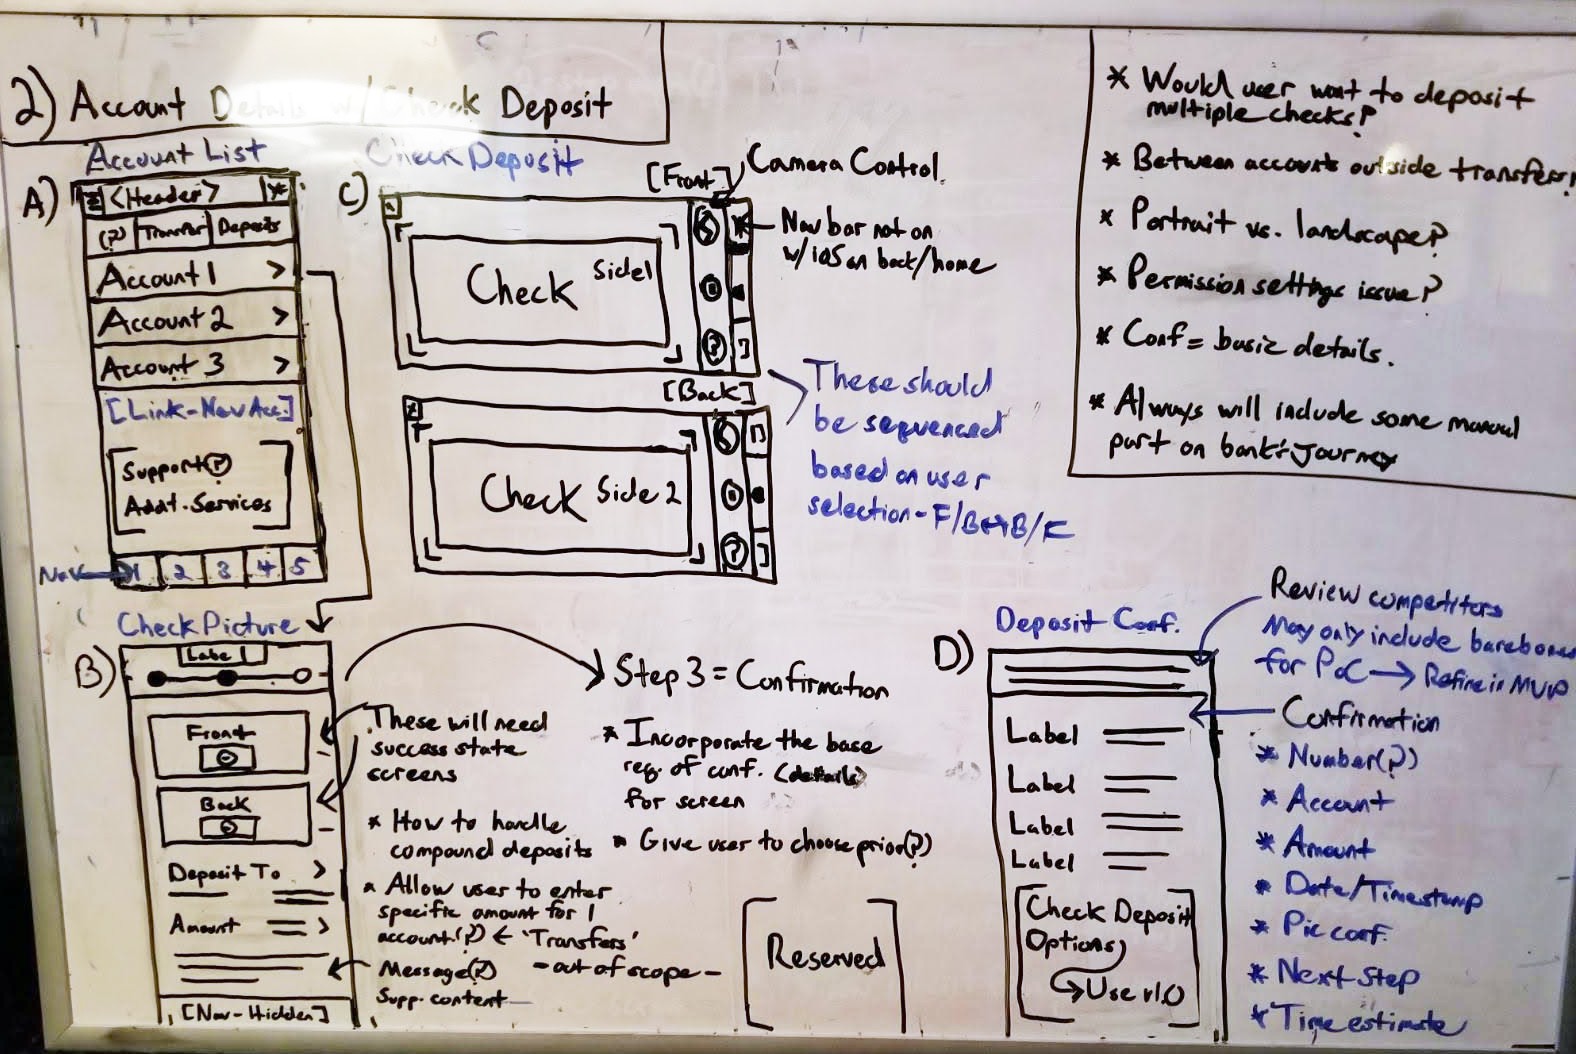 2) Account Details w/ Check Deposit
Account List
A)
<Header>
(?) Transfer Deposits
Account 1 >
Account 2 >
Account 3 >
[Link-New Acc.]
Support(?)
Addt. Services
Nav
1 2 3 4 5
Check Deposit
C)
[Front]
Camera Control
Check Side 1
Nav bar not on
w/ iOS on back/home
[Back]
Check Side 2
These should
be sequenced
based on user
selection - F/B
* Would user want to deposit
multiple checks?
* Between accounts outside transfers?
* Portrait vs. landscape?
* Permission settings issue?
* Conf = basic details.
* Always will include some manual
part on bank's journey
Check Picture
B)
Label
Front
Back
Deposit To >
Amount >
[Nav-Hidden]
These will need
success state
screens
* How to handle
compound deposits
* Allow user to enter
specific amount for 1
account(?) ← 'Transfers'
- out of scope -
Message(?)
Supp. content
Step 3 = Confirmation
* Incorporate the base
req. of conf. (details)
for screen
* Give user to choose prior(?)
[Reserved]
Deposit Conf.
D)
Label
Label
Label
Label
[Check Deposit
Options]
Use v1.0
Review competitors
May only include barebones
for PoC → Refine in MVP
Confirmation
* Number(?)
* Account
* Amount
* Date/Timestamp
* Pic conf.
* Next Step
* Time estimate